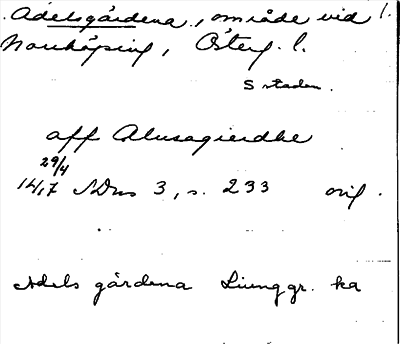 Adelsgårdena, område vid
Norrköping, Österg. l.
S staden.
aff Alusagierdhe
29/4
1417 SDns 3, s. 233 orig.
Adels gårdena Ljunggr. ka